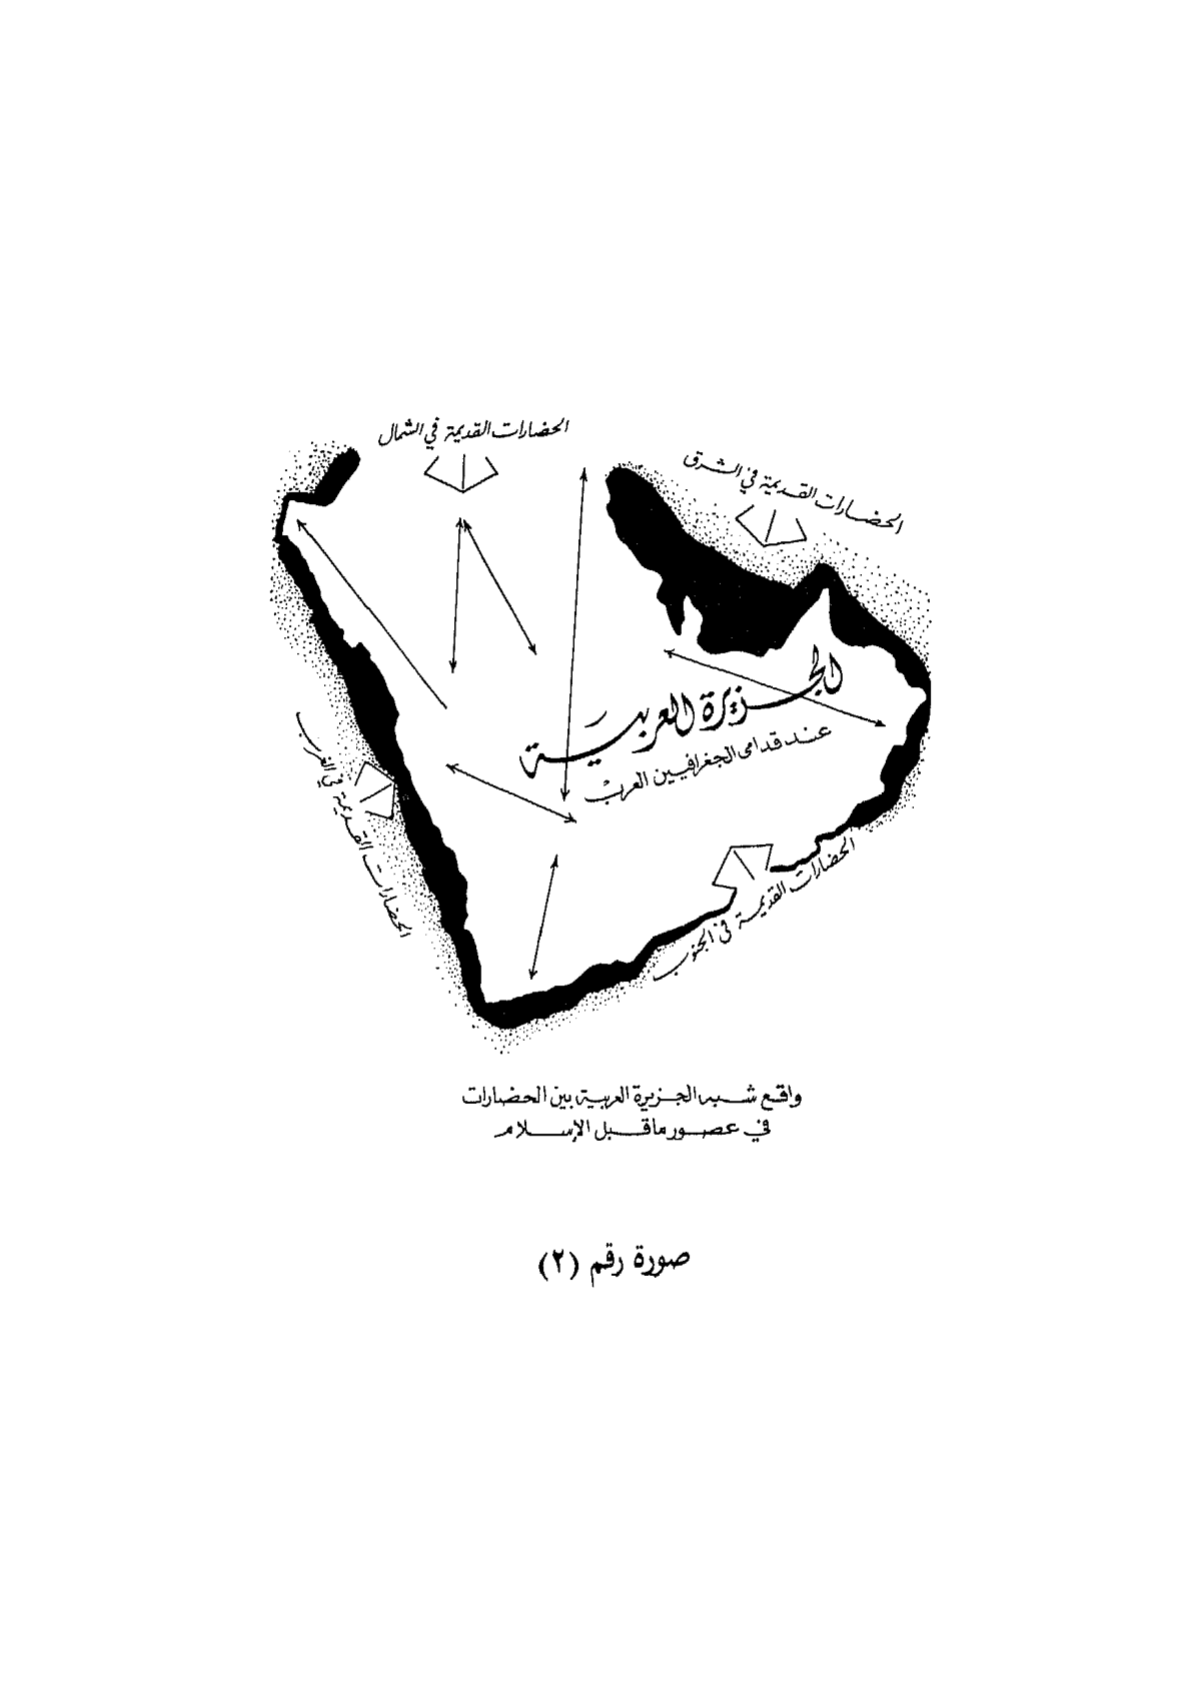 الحضارات القديمة في الشمال
الحضارات القديمة في الشرق
الجزيرة العربية
عند قدامى الجغرافيين العرب
الحضارات القديمة في الغرب
الحضارات القديمة في الجنوب
واقع شبه الجزيرة العربية بين الحضارات
في عصور ما قبل الإسلام
صورة رقم (٢)